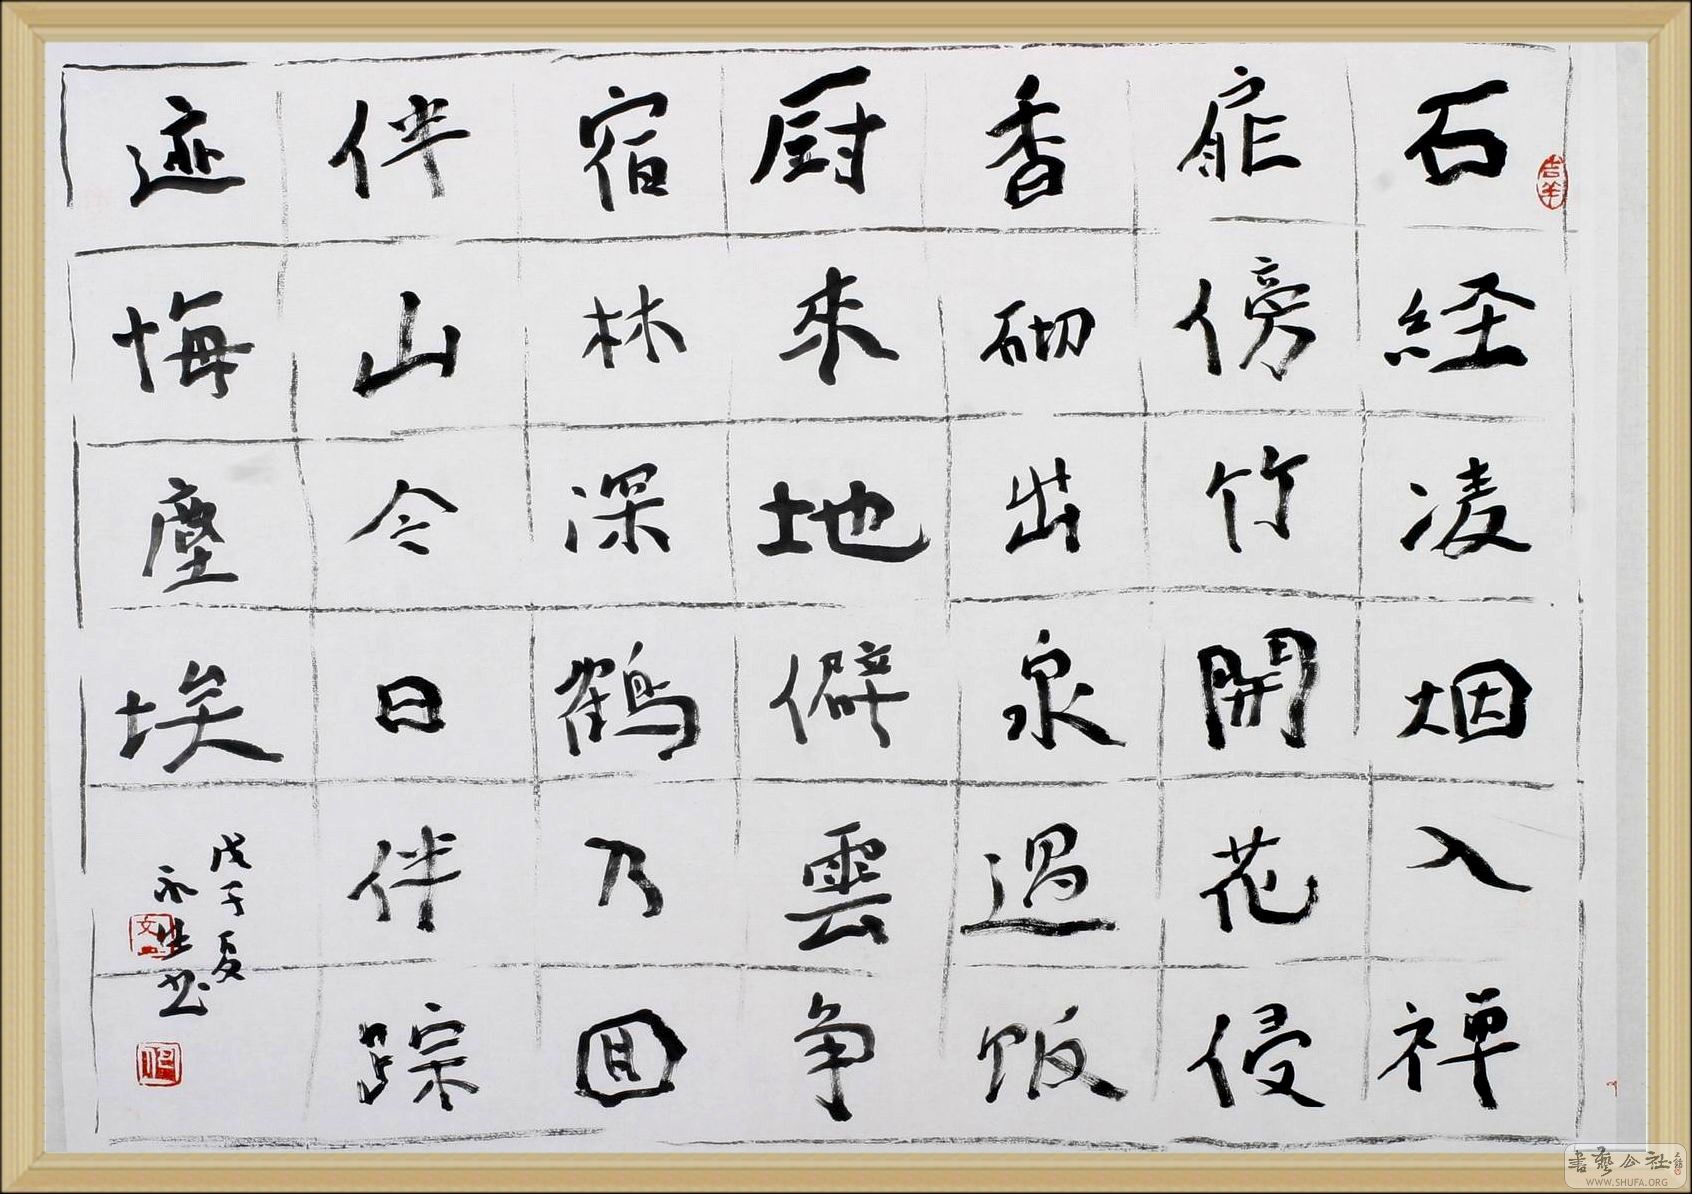 石経凌烟入禅
扉傍竹開花侵
香砌出泉過饭
厨來地僻雲争
宿林深鶴乃囬
伴山今日伴踪
迹悔塵埃
戊子夏
永生书
吉羊
書艺公社
WWW.SHUFA.ORG